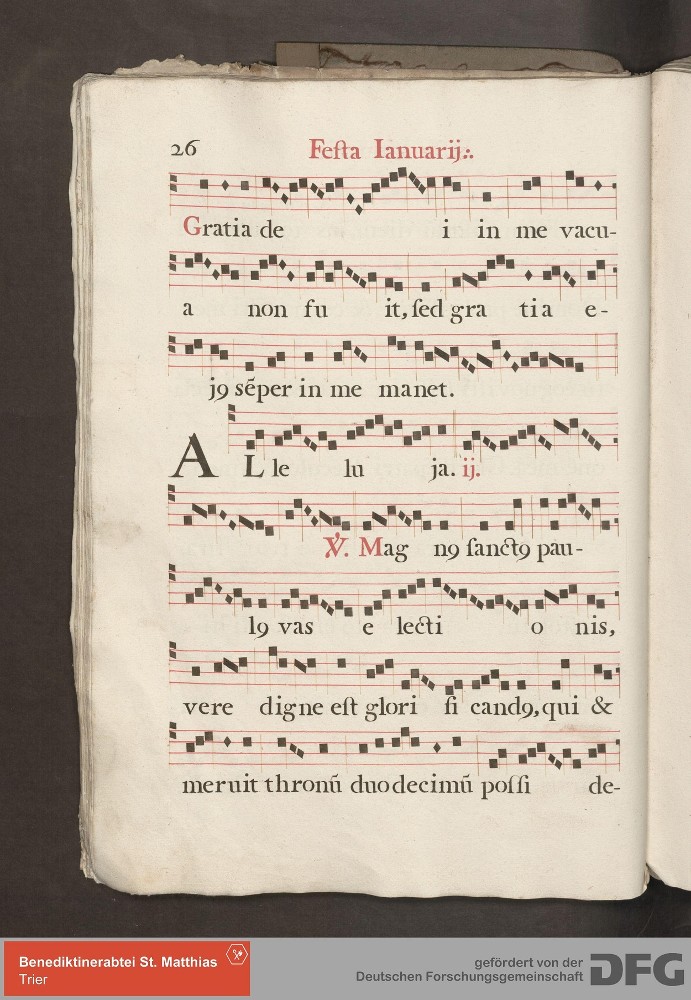 26 Festa Ianuarij:.
Gratia de i in me vacu-
a non fu it, sed gra tia e-
jꝯ sēper in me manet.
ALle lu ja. ij.
℣. Mag nꝯ sanctꝯ pau-
lꝯ vas e lecti o nis,
vere digne est glori fi candꝯ, qui &
meruit thronū duodecimū possi de-
Benediktinerabtei St. Matthias
Trier
gefördert von der
Deutschen Forschungsgemeinschaft
DFG